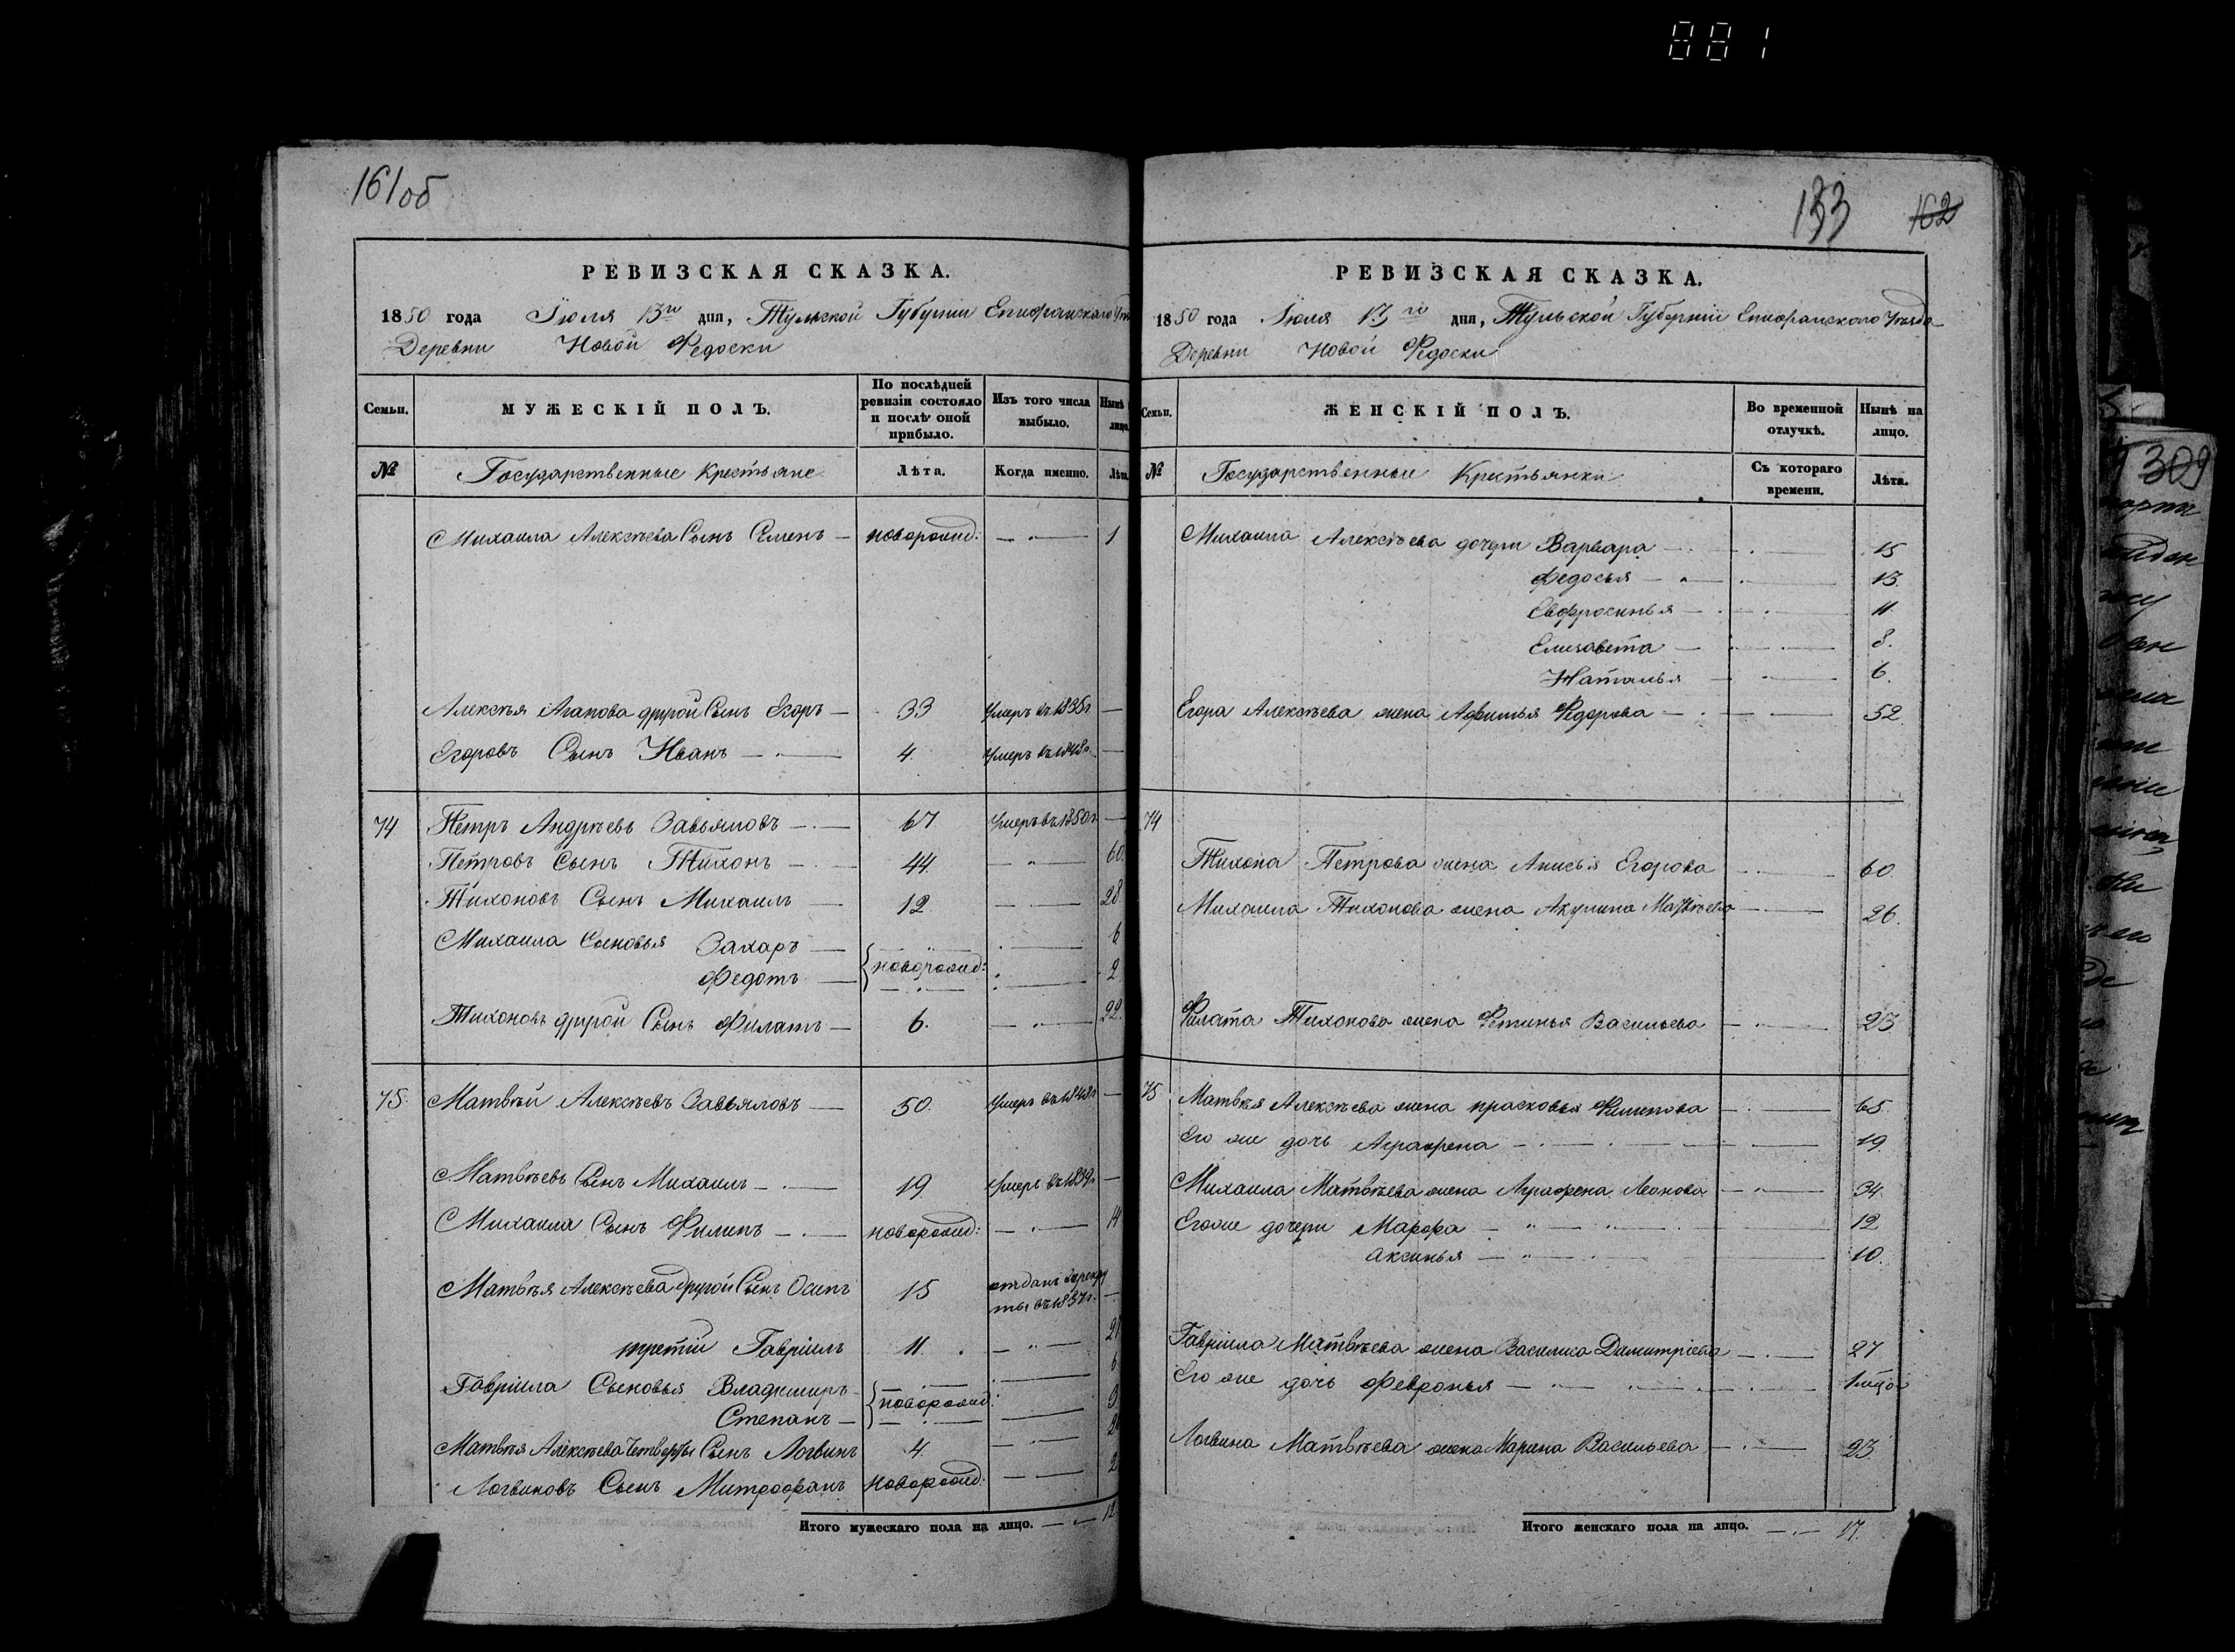 881
161об
РЕВИЗСКАЯ СКАЗКА.
1850 года Іюля 13го дня, Тульской Губерніи Епифанскаго
Деревни Новой Федоски
Семьи. МУЖЕСКІЙ ПОЛЪ. По послѣдней ревизіи состояло и послѣ оной прибыло. Изъ того числа выбыло. Нынѣ лицо.
№ Государственные Крестьяне Лѣта. Когда именно. Лѣта
Михаила Алексѣева Сынъ Семенъ новорожд: 1
Алексѣя Агапова другой Сынъ Егоръ 33 умеръ въ 1835г.
Егоровъ Сынъ Иванъ 4. умеръ въ 1848г.
74 Петръ Андрѣевъ Завьяловъ 67 умеръ въ 1850г.
Петровъ Сынъ Тихонъ 44. 60.
Тихоновъ Сынъ Михаилъ 12 28
Михаила Сыновья Захаръ 6
Федотъ новорожд: 2
Тихоновъ другой Сынъ Филатъ 6. 22.
75. Матвѣй Алексѣевъ Завьяловъ 50. умеръ въ 1848г
Матвѣевъ Сынъ Михаилъ 19 умеръ въ 1839г
Михаила Сынъ Филипъ новорожд: 14
Матвѣя Алексѣева другой Сынъ Осипъ 15 отданъ в рекру
ты въ 1837г.
третій Гавріилъ 11.
Гавріила Сыновья Владимиръ 6
Степанъ новорожд: 3
Матвѣя Алексѣева четвертый Сынъ Логвинъ 4.
Логвиновъ Сынъ Митрофанъ новорожд: 2
Итого мужескаго пола на лицо. 12
133 162
РЕВИЗСКАЯ СКАЗКА.
1850 года Іюля 13го дня, Тульской Губерніи Епифанскаго Уѣзда
Деревни Новой Федоски
Семьи. ЖЕНСКІЙ ПОЛЪ. Во временной отлучкѣ. Нынѣ на лицо.
№ Государственные Крестьянки Съ котораго времени. Лѣта.
Михаила Алексѣева дочери Варвара 15
Федосья 13.
Евфросинья 11
Елизавета 8.
Наталья 6.
Егора Алексѣева жена Афимья Федорова 52.
74
Тихона Петрова жена Анисья Егорова 60.
Михаила Тихонова жена Акулина Матвѣева 26.
Филата Тихонова жена Фетинья Васильева 23
75 Матвѣя Алексѣева жена прасковья Филипова 65.
Его же дочь Аграфена 19.
Михаила Матвѣева жена Аграфена Леонова 34.
Егоже дочери Марфа 12
аксинья 10.
Гавріила Матвѣева жена Василиса Димитріева 27
Его же дочь Февронья
Логвина Матвѣева жена Марина Васильева 23.
Итого женскаго пола на лицо. 17.
309